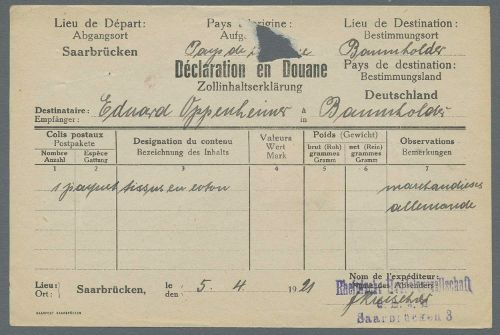 Lieu de Départ: Pays d'origine: Lieu de Destination:
Abgangsort Aufg Bestimmungsort
Saarbrücken Pays de Baumholder
Pays de destination:
Déclaration en Douane Bestimmungsland
Zollinhaltserklärung
Deutschland
Destinataire: Eduard Oppenheimer à Baumholder
Empfänger: in
Colis postaux Designation du contenu Valeurs Poids (Gewicht) Observations
Postpakete Bezeichnung des Inhalts Wert brut (Roh) net (Rein) Bemerkungen
Nombre Espèce Mark grammes grammes
Anzahl Gattung Gramm Gramm
1 2 3 4 5 6 7
1 paquet tissus en coton marchandises
allemande
Nom de l'expéditeur:
Lieu: Saarbrücken, le 5. 4. 1921 Name des Absenders
Ort: den
Saarbrücken 3
SAARBRÜCKER